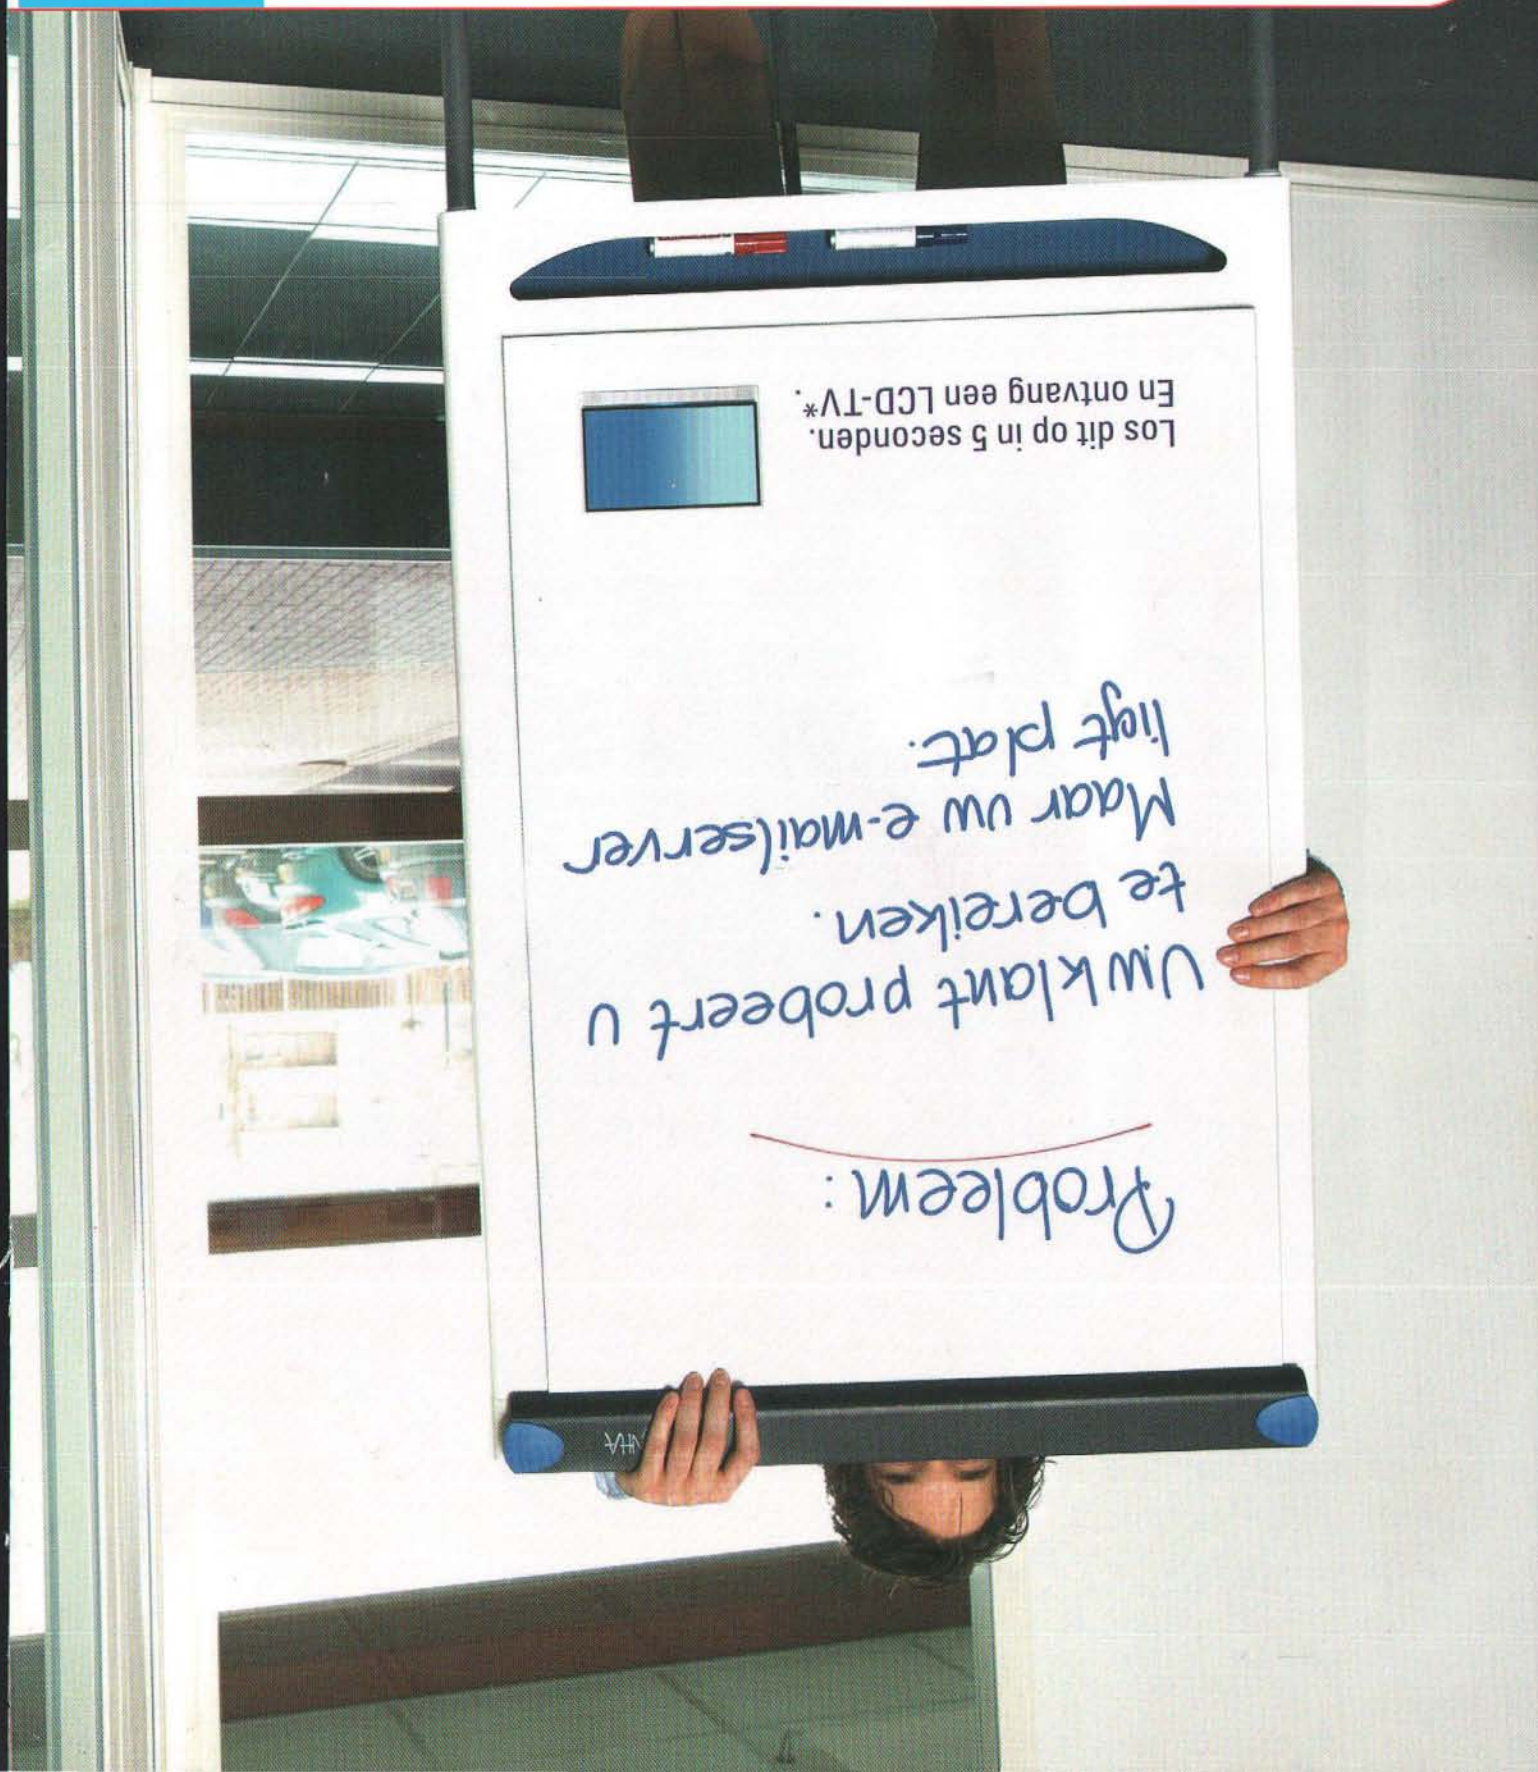 Probleem:
Uw klant probeert u
te bereiken.
Maar uw e-mailserver
ligt plat.
Los dit op in 5 seconden.
En ontvang een LCD-TV*.